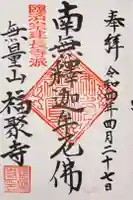 奉拝
令和四年四月二十七日
南無釋迦牟尼佛
臨済宗建長寺派
無量山
福聚寺